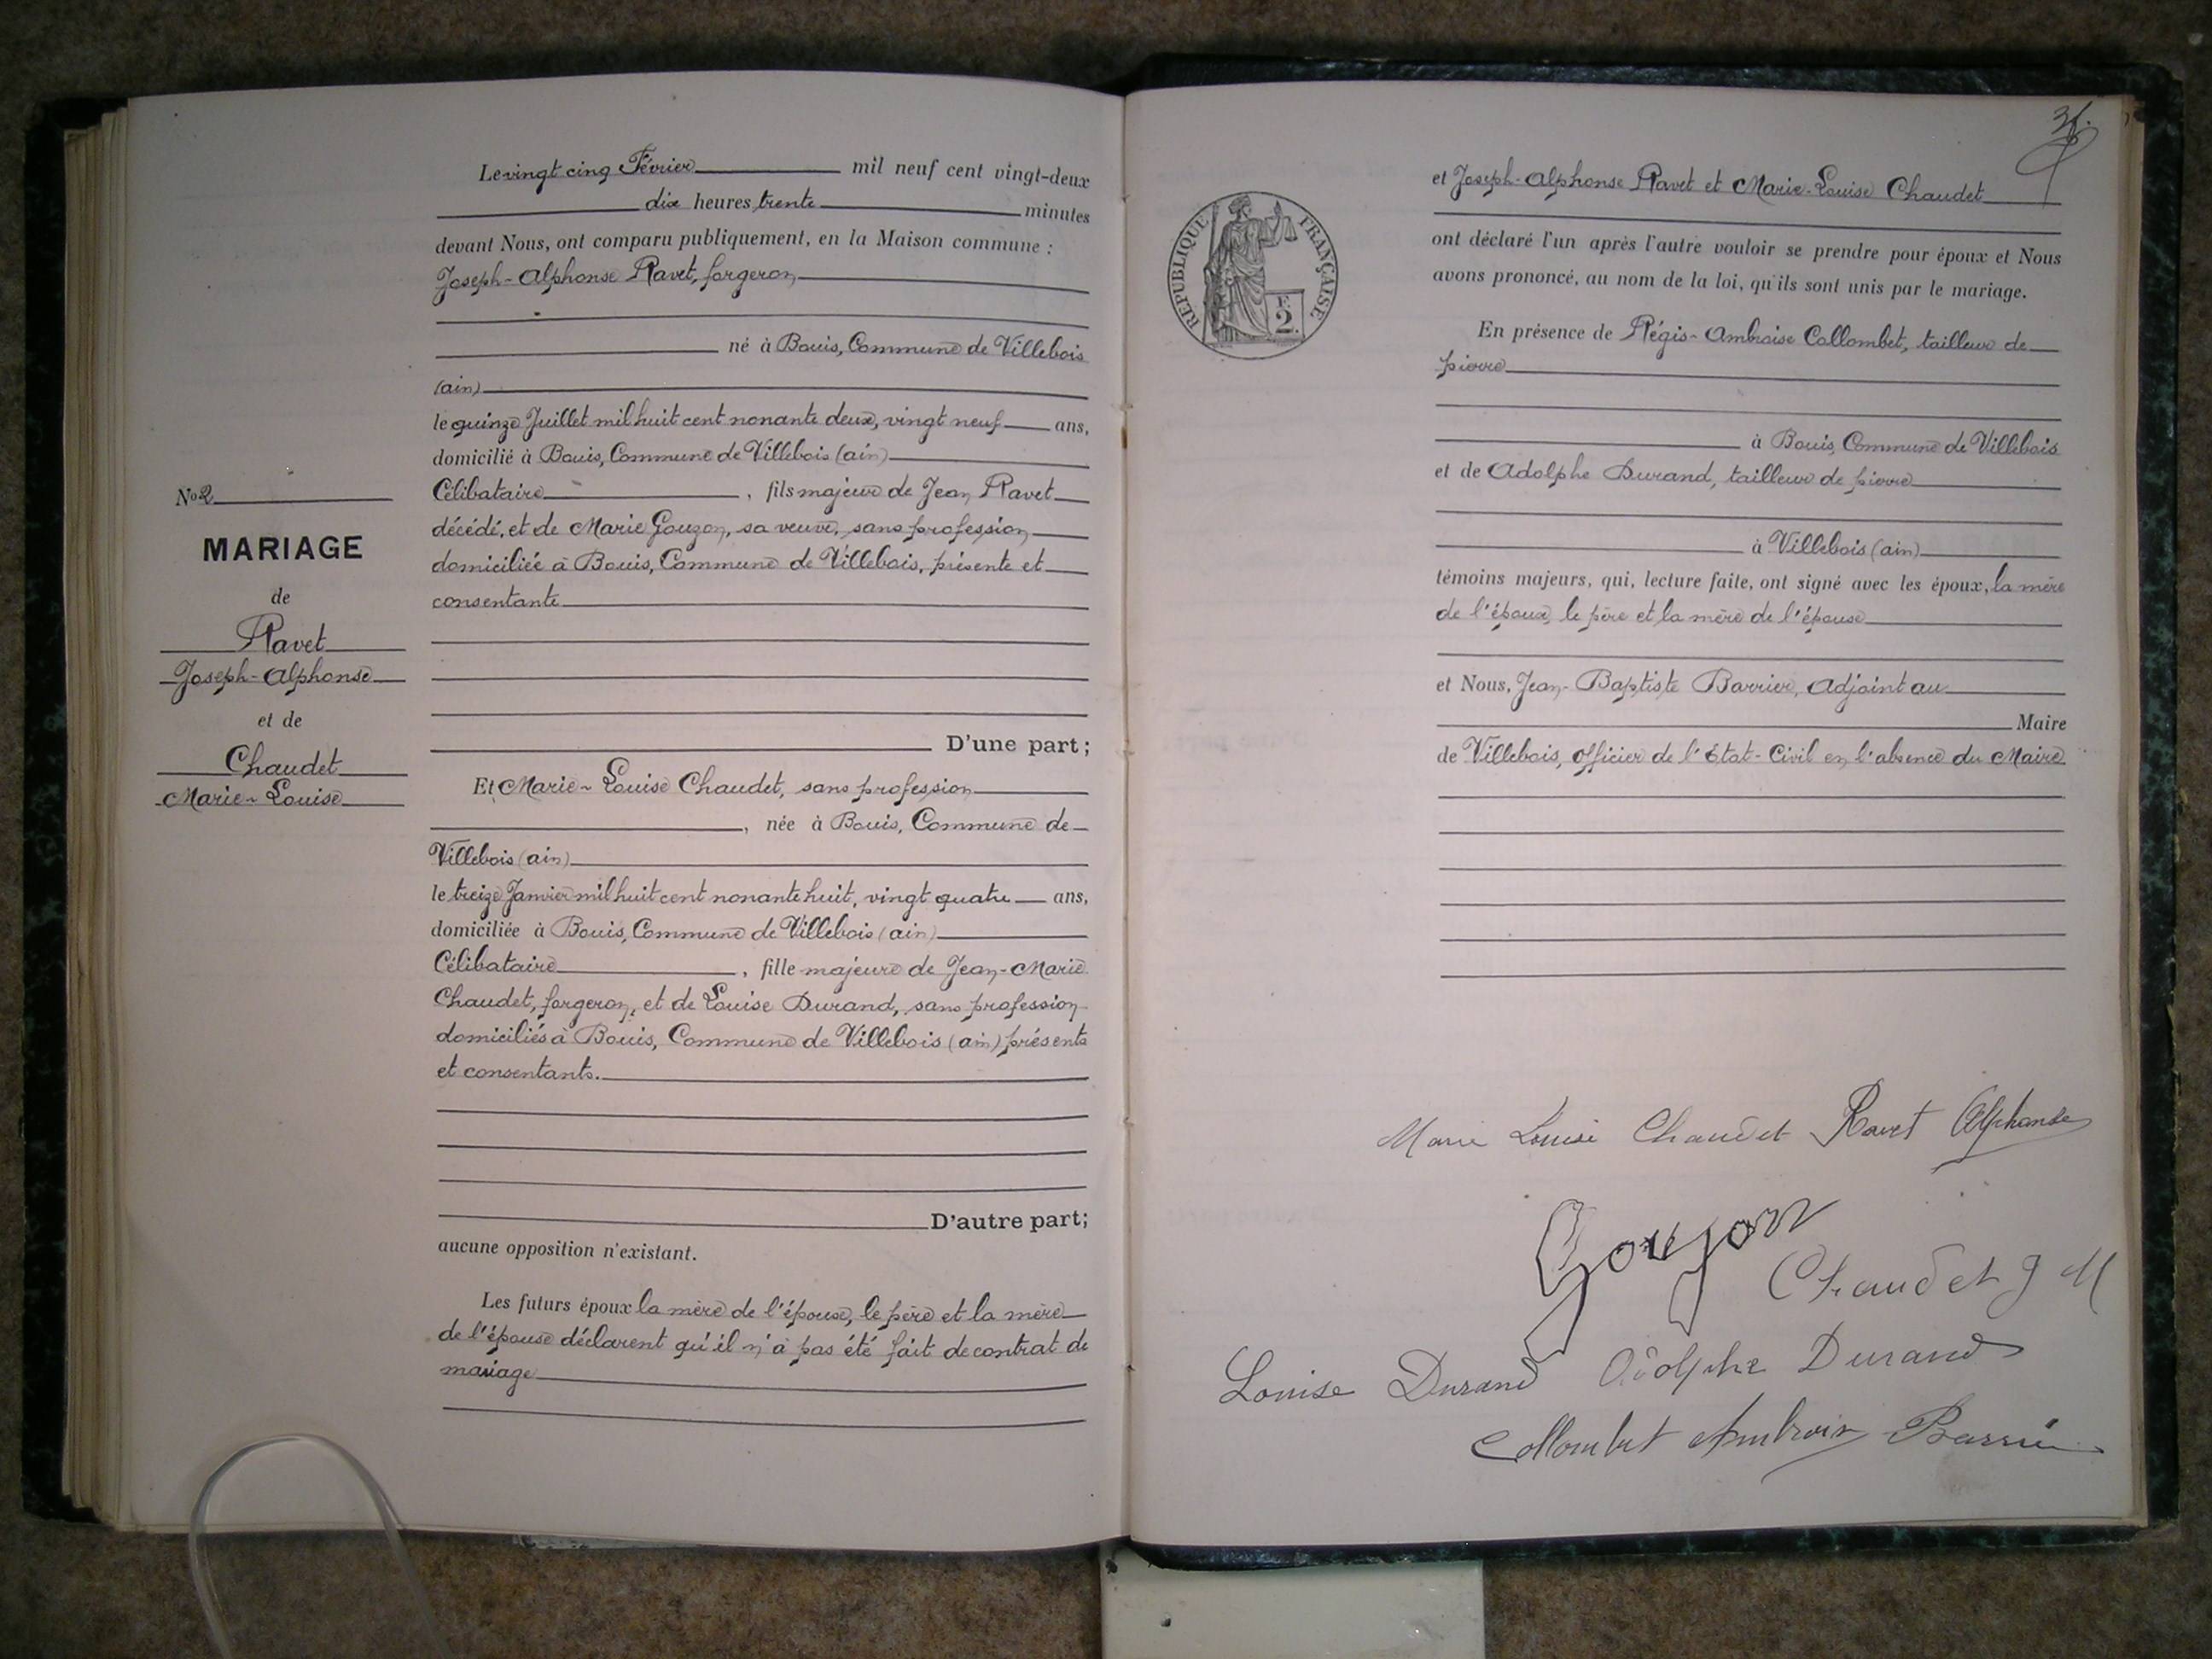 Le vingt cinq Février mil neuf cent vingt-deux
dix heures trente minutes
devant Nous, ont comparu publiquement, en la Maison commune :
Joseph-Alphonse Ravet, forgeron
né à Bouis, Commune de Villebois
(ain)
le quinze Juillet mil huit cent nonante deux, vingt neuf ans,
domicilié à Bouis, Commune de Villebois (ain)
Célibataire, fils majeur de Jean Ravet
décédé, et de Marie Gouzon, sa veuve, sans profession
domiciliée à Bouis, Commune de Villebois, présente et
consentante
D'une part;
Et Marie-Louise Chaudet, sans profession
, née à Bouis, Commune de
Villebois (ain)
le treize Janvier mil huit cent nonante huit, vingt quatre ans,
domiciliée à Bouis, Commune de Villebois (ain)
Célibataire, fille majeure de Jean-Marie
Chaudet, forgeron, et de Louise Durand, sans profession
domiciliés à Bouis, Commune de Villebois (ain) présents
et consentants.
D'autre part;
aucune opposition n'existant.
Les futurs époux la mère de l'épouse, le père et la mère
de l'épouse déclarent qu'il n'a pas été fait de contrat de
mariage
No 2
MARIAGE
de
Ravet
Joseph-Alphonse
et de
Chaudet
Marie-Louise
RÉPUBLIQUE FRANÇAISE
F.
2.
et Joseph-Alphonse Ravet et Marie-Louise Chaudet
ont déclaré l'un après l'autre vouloir se prendre pour époux et Nous
avons prononcé, au nom de la loi, qu'ils sont unis par le mariage.
En présence de Régis-Ambroise Collombet, tailleur de
pierre
à Bouis, Commune de Villebois
et de Adolphe Durand, tailleur de pierre
à Villebois (ain)
témoins majeurs, qui, lecture faite, ont signé avec les époux, la mère
de l'époux, le père et la mère de l'épouse
et Nous, Jean-Baptiste Barrier, Adjoint au
Maire
de Villebois, officier de l'Etat-Civil en l'absence du Maire
Marie Louise Chaudet Ravet Alphonse
Gouzon
Chaudet J M
Louise Durand Adolphe Durand
Collombet Ambroise Barrier